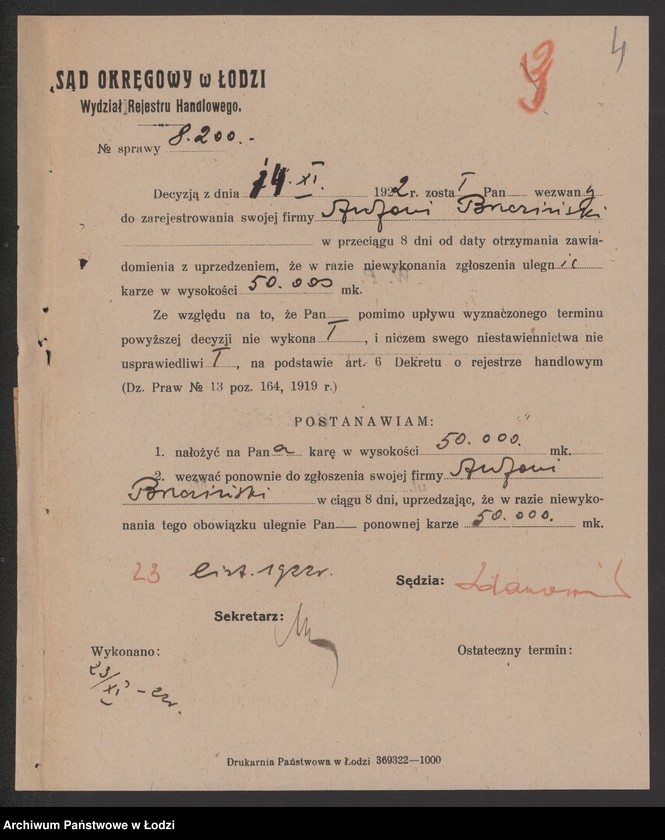 9
4
SĄD OKRĘGOWY w ŁODZI
Wydział Rejestru Handlowego.
№ sprawy 8.200.-
Decyzją z dnia 14. XI. 1922 r. został Pan wezwany
do zarejestrowania swojej firmy Antoni Brzeziński
w przeciągu 8 dni od daty otrzymania zawia-
domienia z uprzedzeniem, że w razie niewykonania zgłoszenia ulegnie
karze w wysokości 50.000 mk.
Ze względu na to, że Pan pomimo upływu wyznaczonego terminu
powyższej decyzji nie wykonał, i niczem swego niestawiennictwa nie
usprawiedliwił, na podstawie art. 6 Dekretu o rejestrze handlowym
(Dz. Praw № 13 poz. 164, 1919 r.)
POSTANAWIAM:
1. nałożyć na Pana karę w wysokości 50.000. mk.
2. wezwać ponownie do zgłoszenia swojej firmy Antoni
Brzeziński w ciągu 8 dni, uprzedzając, że w razie niewyko-
nania tego obowiązku ulegnie Pan ponownej karze 50.000. mk.
23 list. 1922r. Sędzia:
Sekretarz:
Wykonano: Ostateczny termin:
23/XI - 22r.
Drukarnia Państwowa w Łodzi 369322—1000
Archiwum Państwowe w Łodzi